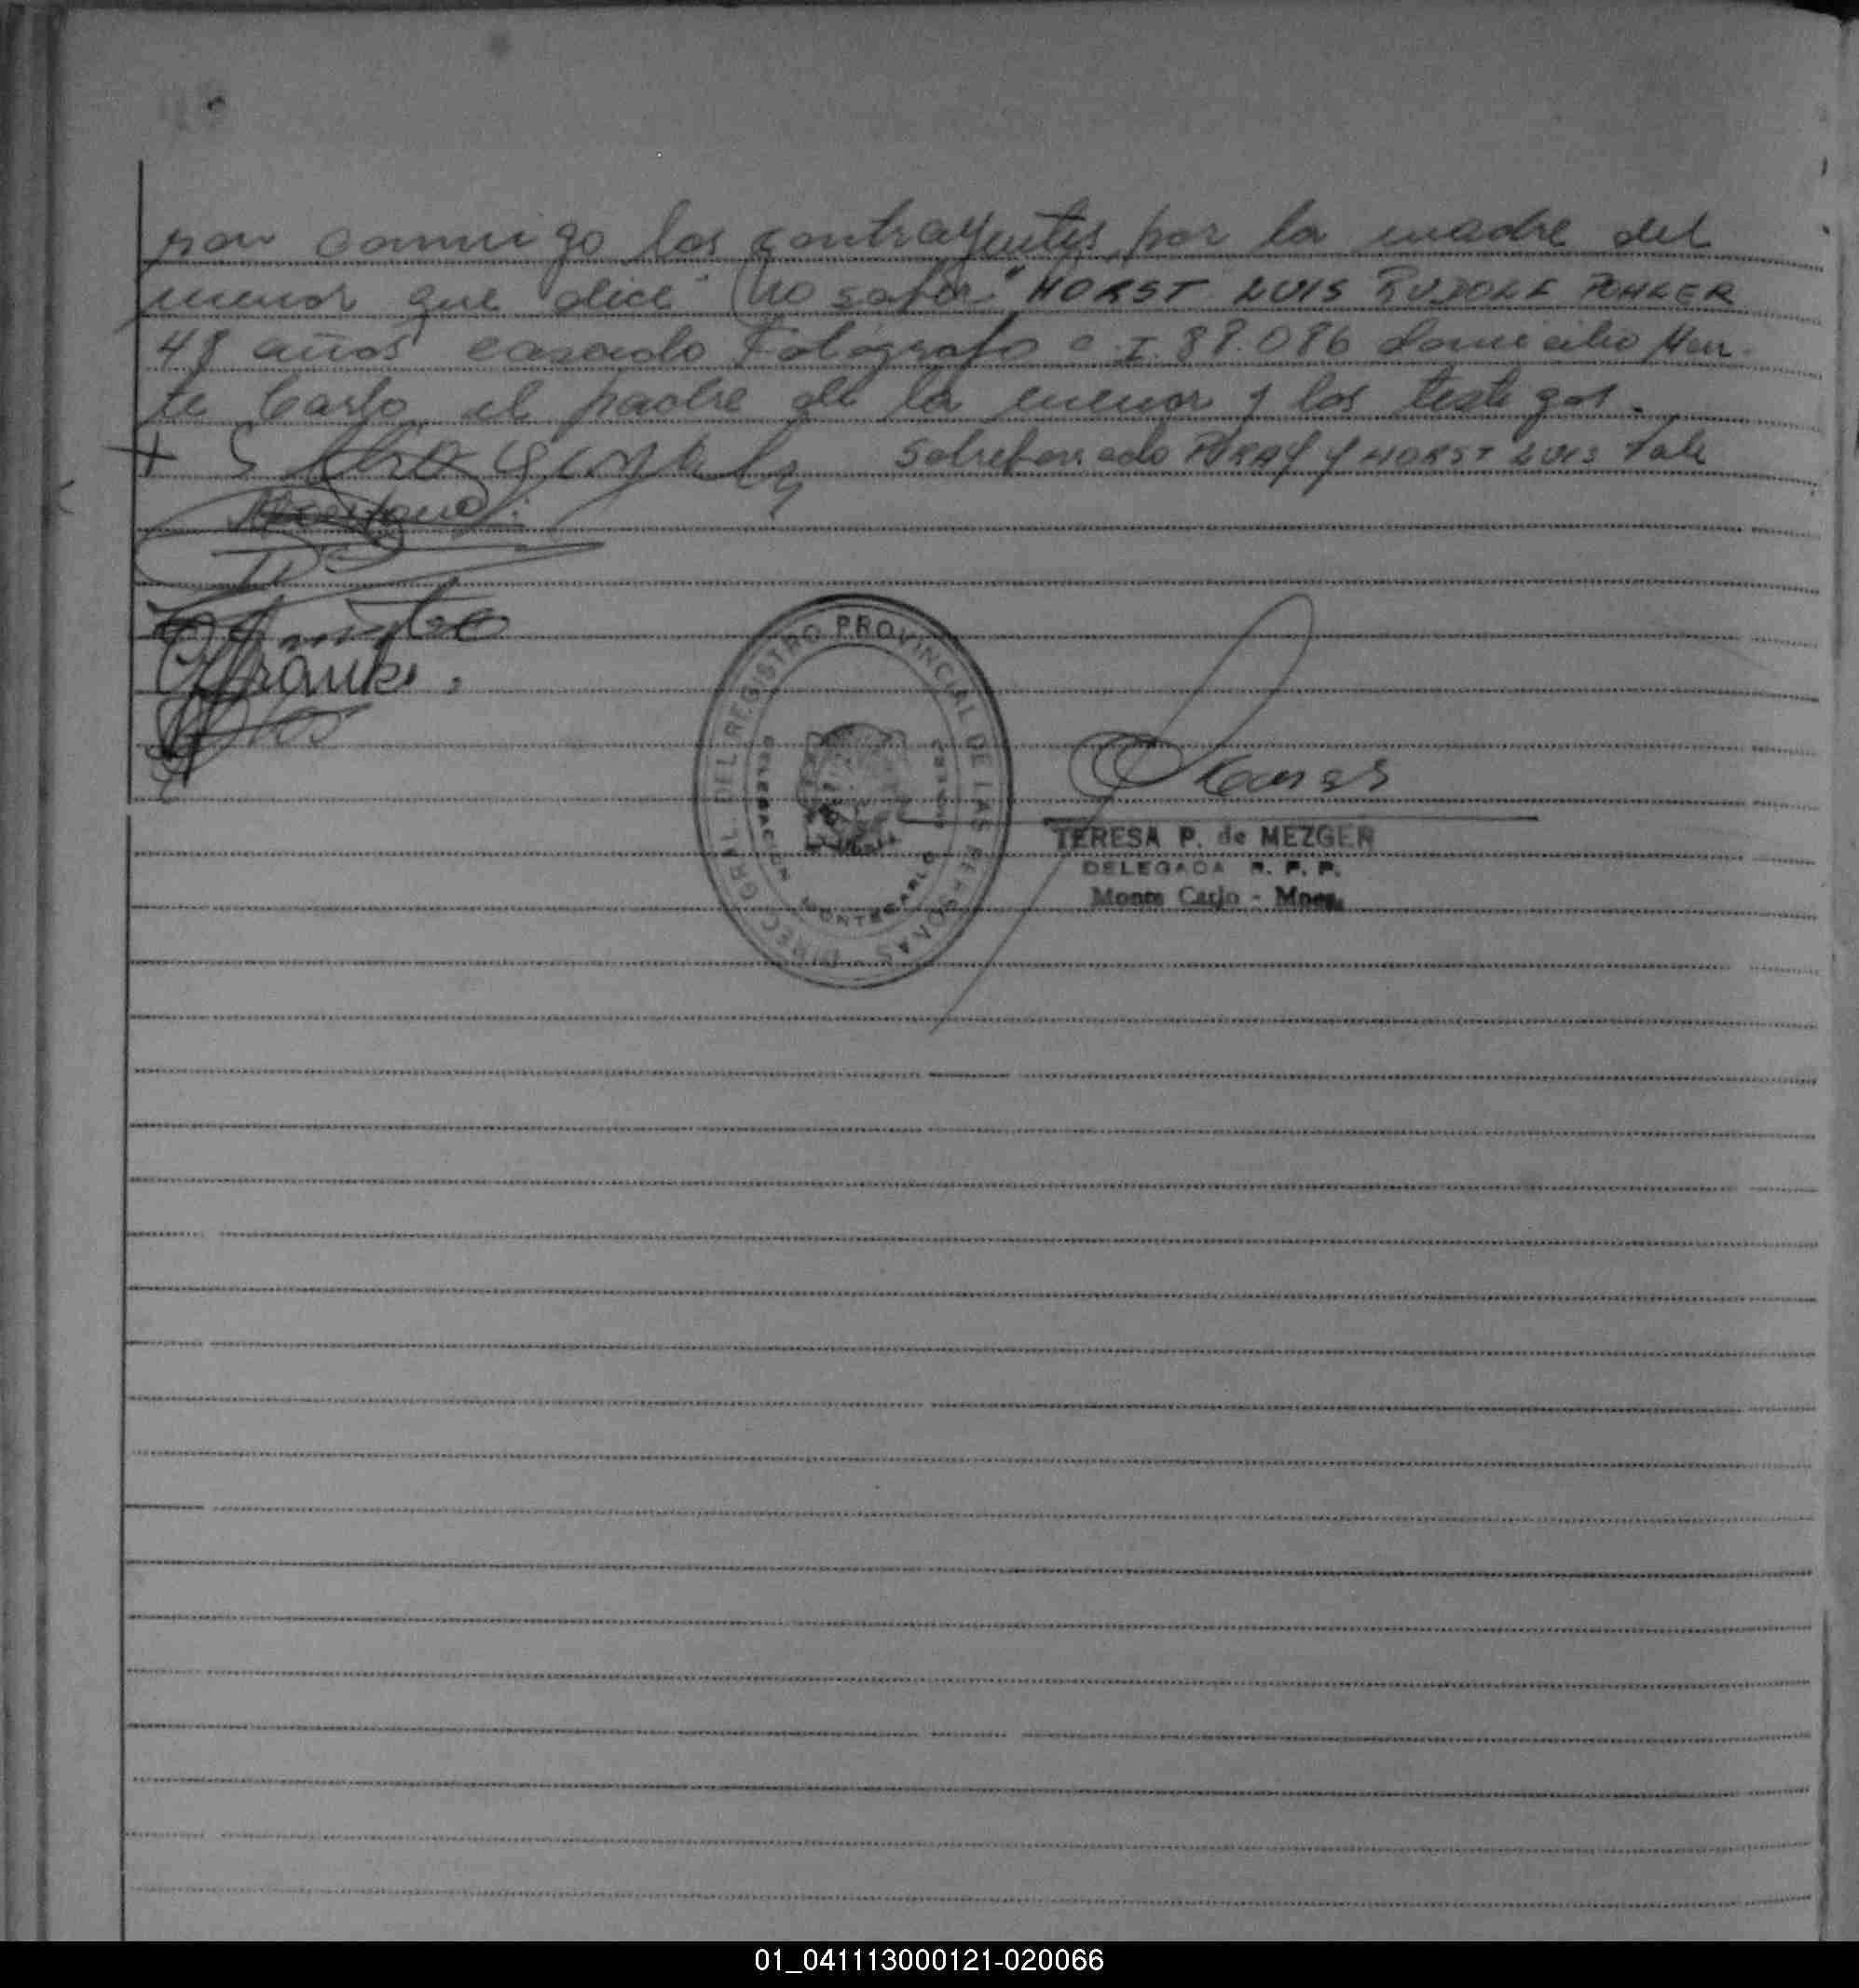 ron conmigo los contrayentes, por la madre del
menor que dice "No saber" HORST LUIS RUDOLF POHLER
48 años casado Fotógrafo c. I. 88.086 domicilio Mon-
te Carlo el padre de la menor y los testigos.
+ Sobreborrado y HORST LUIS Vale
Franke.
DIREC. GRAL. DEL REGISTRO PROVINCIAL DE LAS PERSONAS
DELEGACION MONTECARLO
TERESA P. de MEZGER
DELEGADA R. P. P.
Monte Carlo - Mnes.
01_041113000121-020066